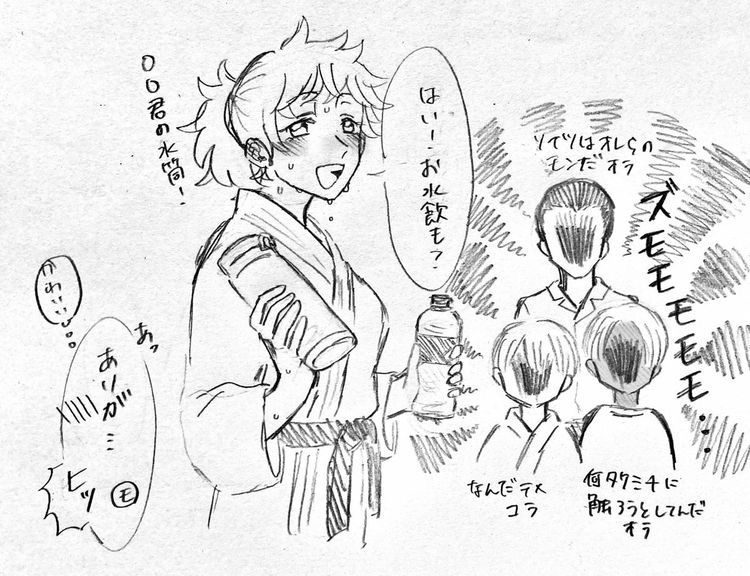 はいー・お水飲も?
〇〇君の水筒!
ソイツはオレらの
モンだオラ
ズモモモモモ…
かわいい…
あっ
ありが…
ヒッ
モ
なんだテメ
コラ
何タケミチに
触ろうとしてんだ
オラ